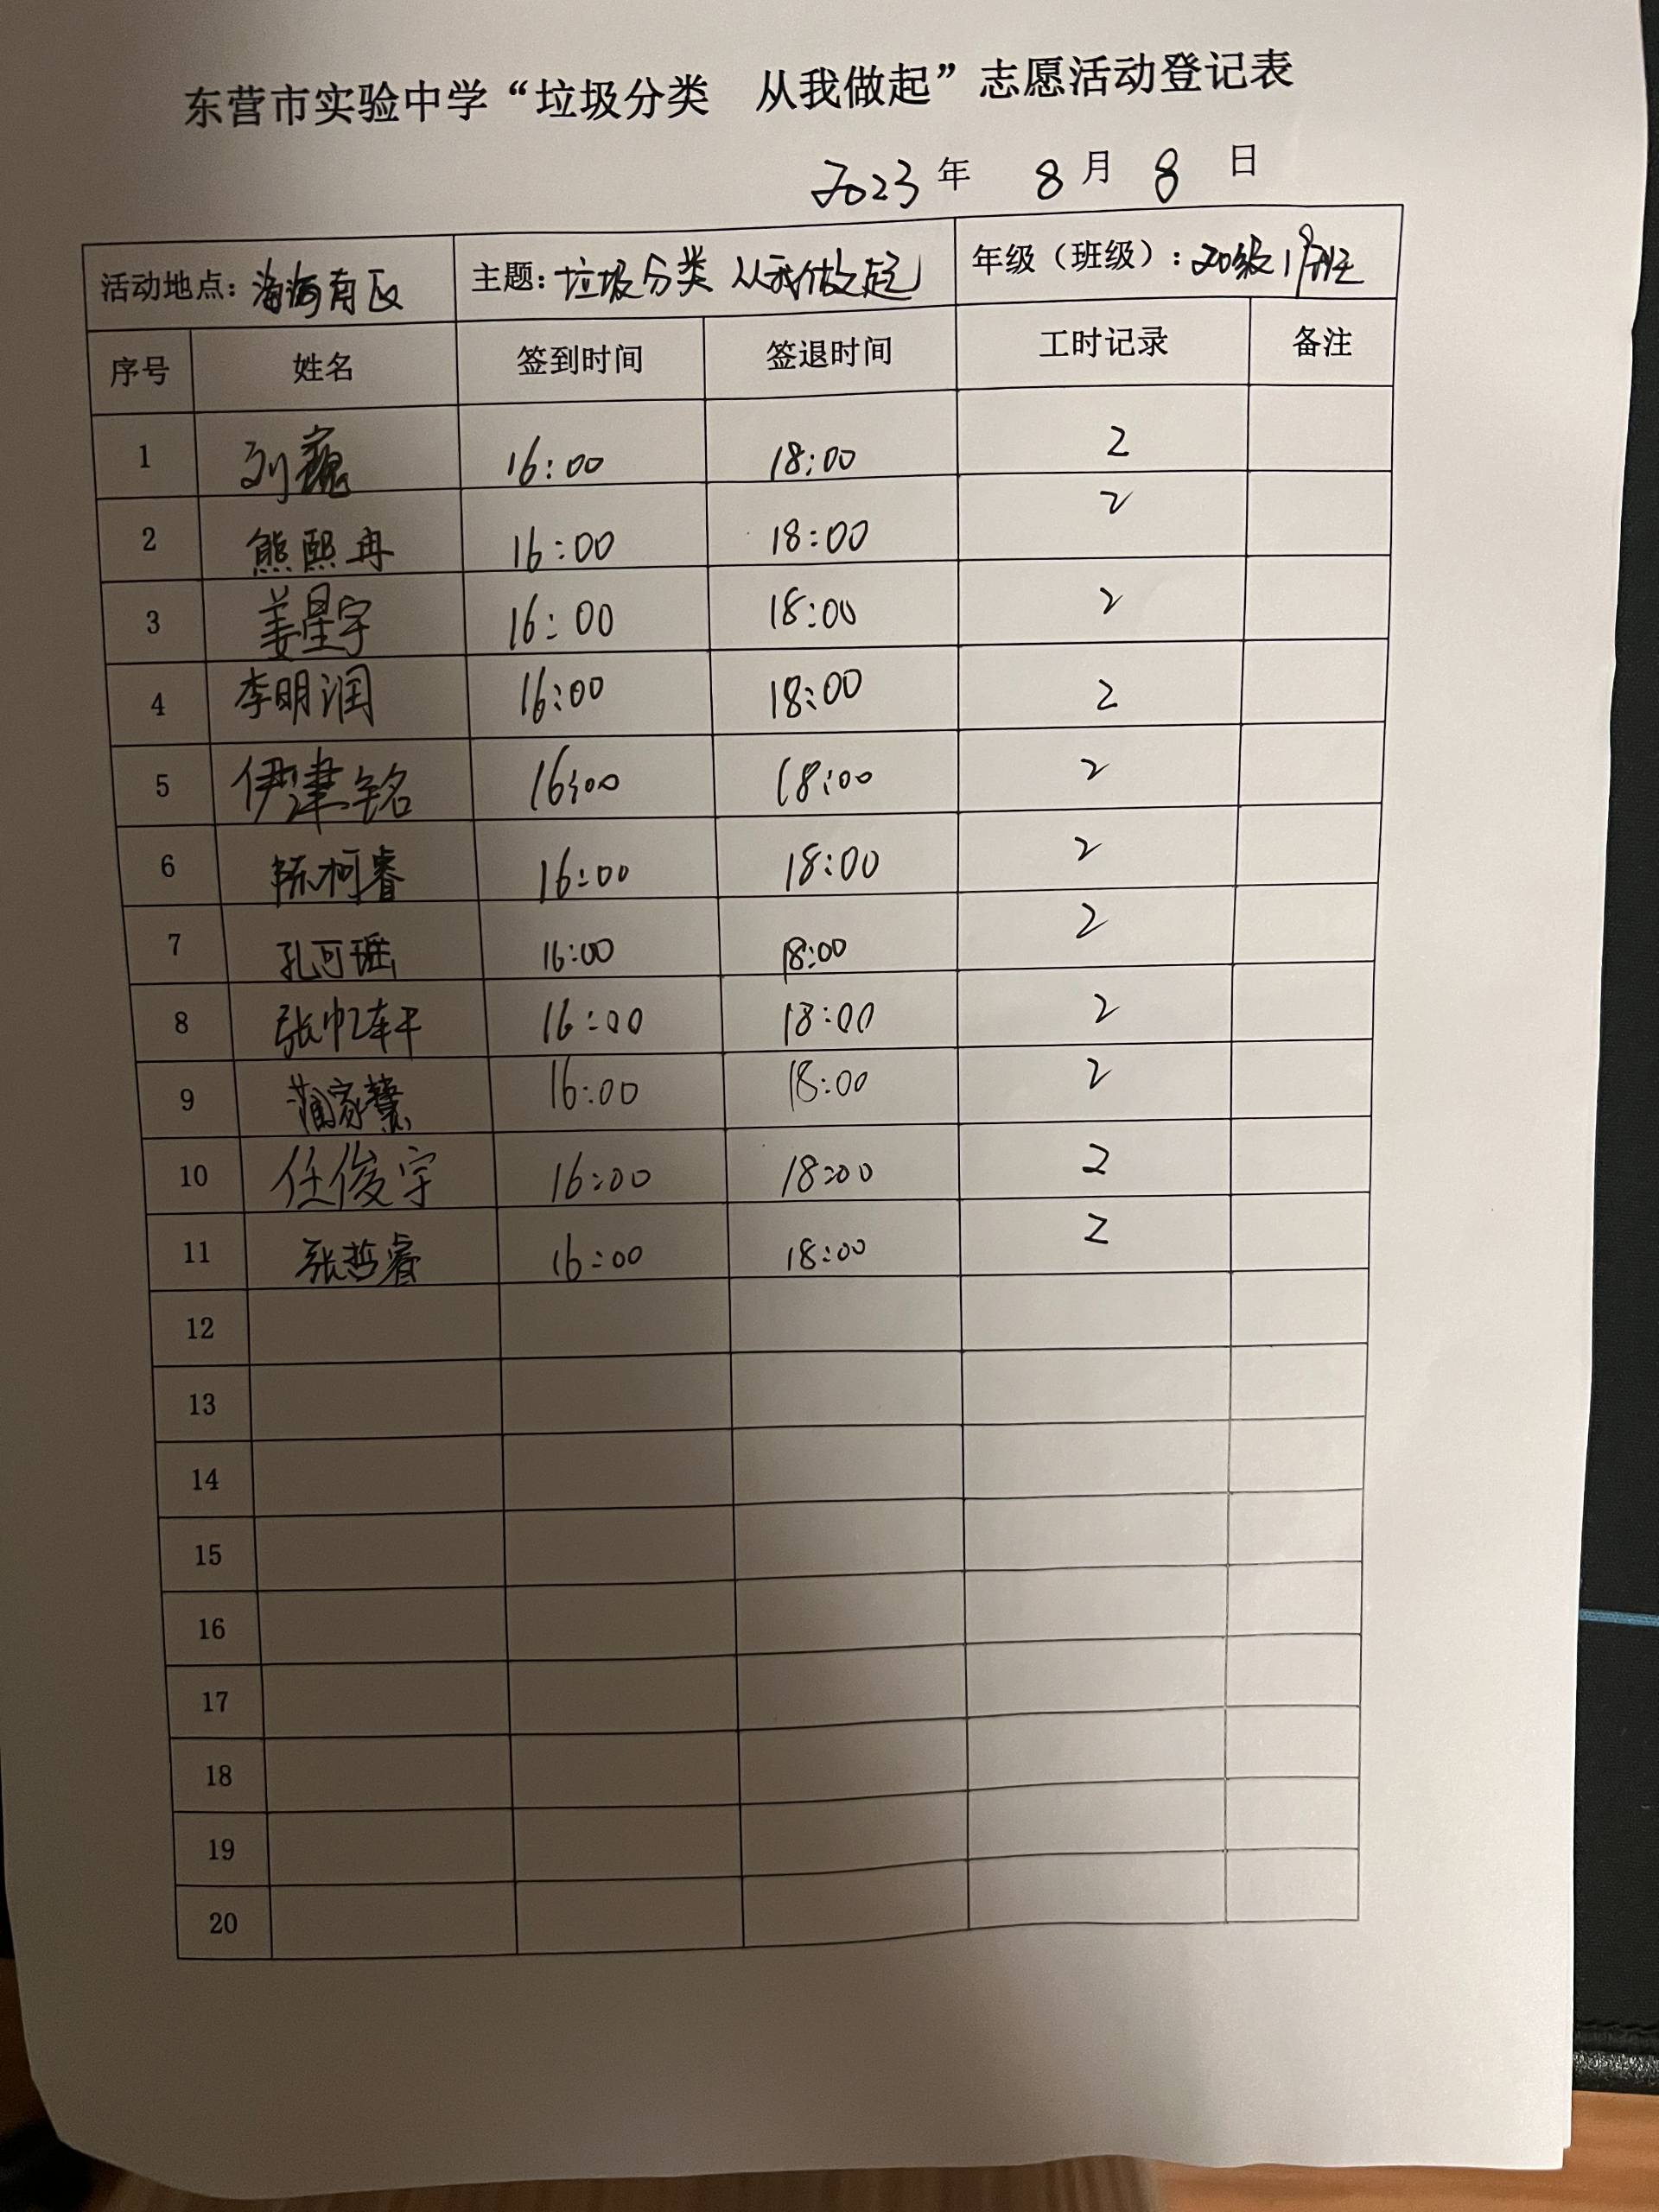 东营市实验中学“垃圾分类 从我做起”志愿活动登记表
2023 年 8 月 8 日
活动地点: 海南区 主题: 垃圾分类 从我做起 年级（班级）: 20级 班
序号 姓名 签到时间 签退时间 工时记录 备注
1 刘巍 16:00 18:00 2
2 熊熙冉 16:00 18:00 2
3 姜星宇 16:00 18:00 2
4 李明润 16:00 18:00 2
5 伊聿铭 16:00 18:00 2
6 陈柯睿 16:00 18:00 2
7 孔可瑶 16:00 18:00 2
8 张 16:00 18:00 2
9 蒲家 16:00 18:00 2
10 任俊宇 16:00 18:00 2
11 张哲睿 16:00 18:00 2
12
13
14
15
16
17
18
19
20